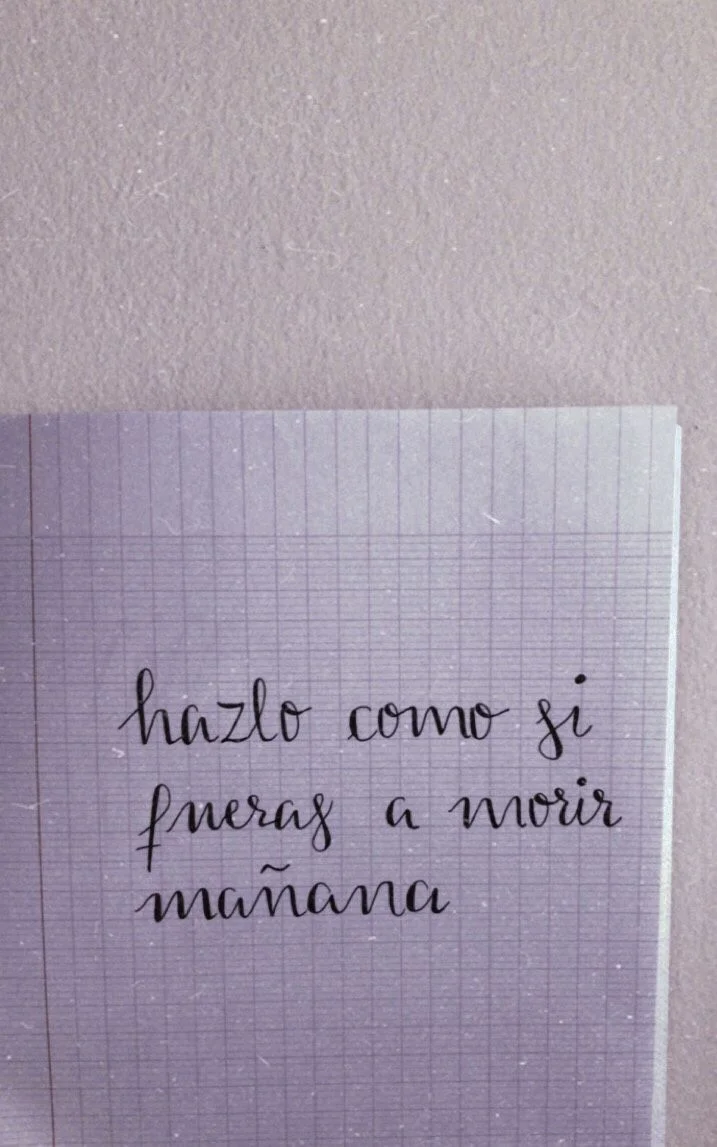 hazlo como si
fueras a morir
mañana